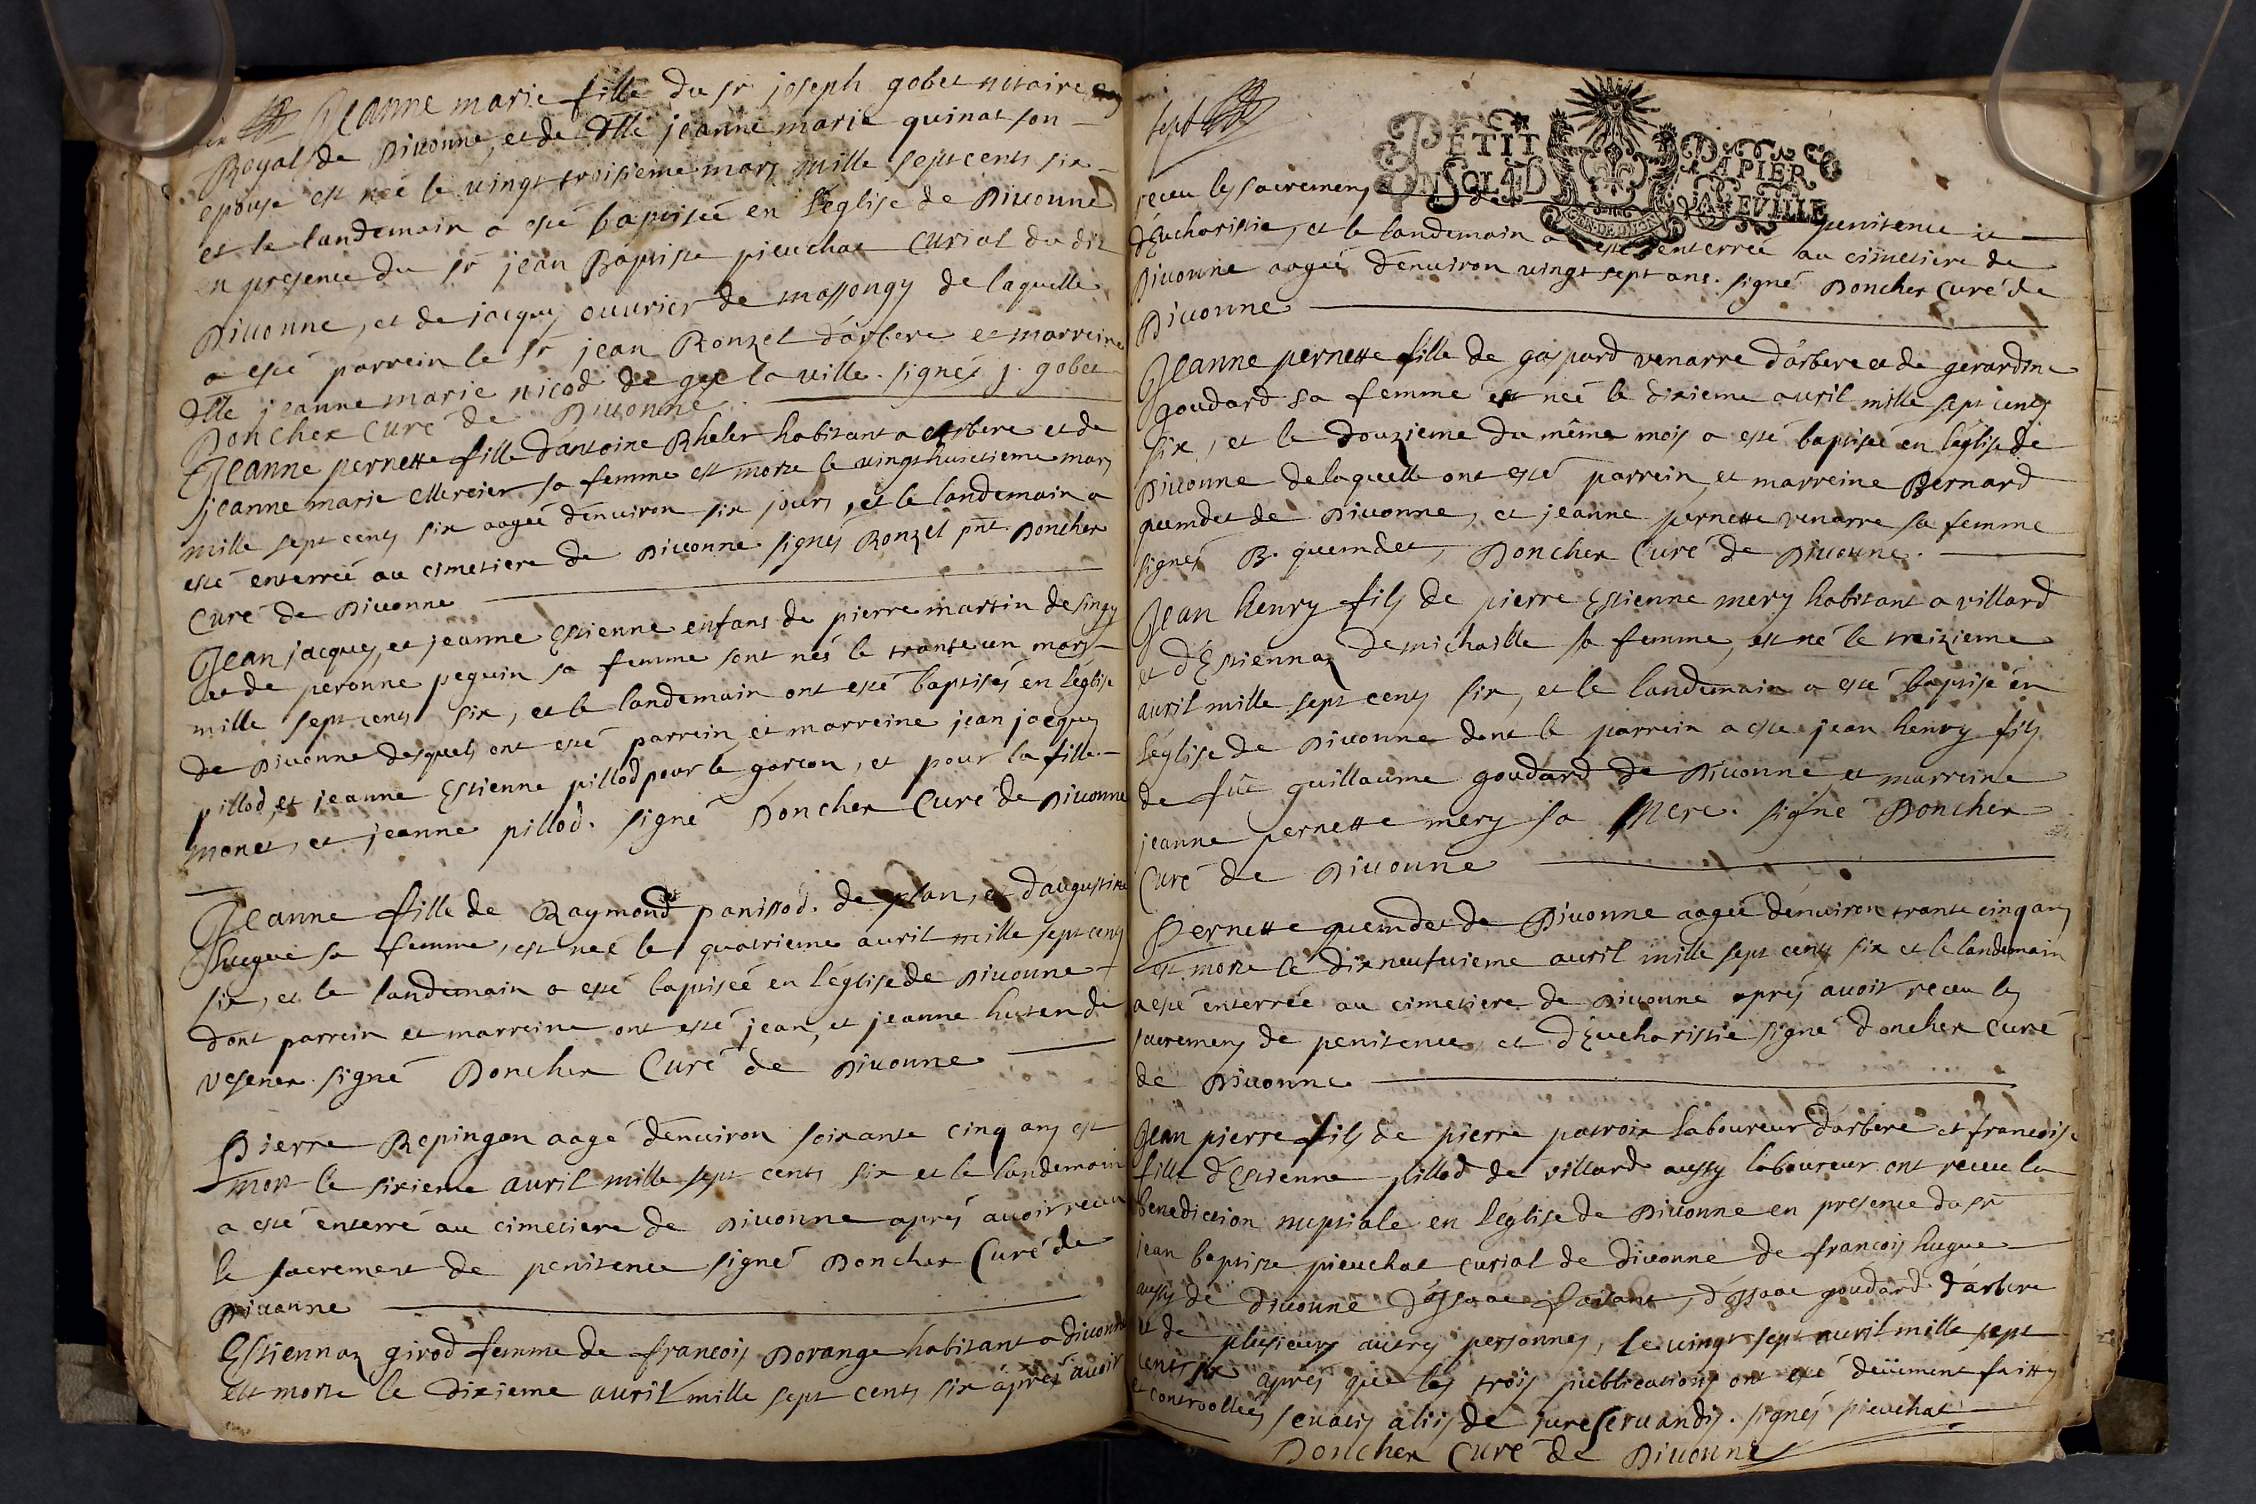 six Jeanne marie fille du sr joseph gobet notaire
Royal de Diuonne, et de dlle jeanne marie quinat son
epouse est née le uingt troisieme mars mille sept cents six
et le landemain a esté baptisée en l'eglise de Diuonne
en presence du sr jean Baptiste pieuchat curial du dit
Diuonne, et de jacques ouurier de massongy de laquelle
a esté parrein le sr jean Ronzel d'arbere et marreine
dlle jeanne marie nicod de gex la uille. signés j. gobet
Doncher Curé de Diuonne.
Jeanne pernette fille d'antoine Rheler habitant a arbere et de
jeanne marie Mercier sa femme est morte le uingthuictieme mars
mille sept cents six aageé d'enuiron six jours, et le landemain a
esté enterreé au cimetiere de Diuonne signés Ronzel pnt Doncher
Curé de Diuonne
Jean jacques, et jeanne Estienne enfans de pierre martin de singy
et de peronne peguin sa femme sont nés le trante un mars
mille sept cents six, et le landemain ont esté baptisés en l'église
de Diuonne desquels ont esté parrein et marreine jean jacques
pillod, et jeanne Estienne pillod pour le garcon, et pour la fille
monet, et jeanne pillod. signé Doncher Curé de Diuonne
Jeanne fille de Raymond panissod. de plan, et d'augustine
hugue sa femme, est neé le quatrieme auril mille sept cents
six, et le landemain a esté baptiseé en l'église de Diuonne
dont parrein et marreine ont esté jean, et jeanne huten de
vesenex signé Doncher Curé de Diuonne
Pierre Repingon aagé d'enuiron soixante cinq ans est
mort le sixieme auril mille sept cents six et le landemain
a esté enterré au cimetiere de Diuonne aprés auoir receu
le sacrement de penitence signé Doncher Curé de
Diuonne
Estiennaz girod femme de francois Dorange habitant a diuonne
est morte le dixieme auril mille sept cents six aprés auoir
sept
PETIT PAPIER
UN SOL 4 D LA FEVILLE
GEN. DE DIJON
receu les sacremens de penitence et
d'Eucharistie, et le landemain a esté enterreé au cimetiere de
Diuonne aageé d'enuiron uingt sept ans. signé Doncher Curé de
Diuonne
Jeanne pernette fille de gaspard venarre d'arbere et de gerardine
goudard sa femme est neé le dixieme auril mille sept cents
six, et le douzieme du même mois a esté baptisée en l'église de
Diuonne de laquelle ont esté parrein et marreine Bernard
queindet de Diuonne, et jeanne pernette venarre sa femme
signés B. queindet, Doncher Curé de Diuonne.
Jean henry fils de pierre Estienne mery habitant a villard
et d'Estiennaz demichaille sa femme, est né le treizieme
auril mille sept cents six, et le landemain a esté baptisé en
l'église de Diuonne dont le parrein a esté jean henry fils
de fûe guillaume goudard de Diuonne et marreine
jeanne pernette mery sa Mere. signé Doncher
Curé de Diuonne
Pernette queindet de Diuonne aageé d'enuiron trante cinq ans
est morte le dixneufuieme auril mille sept cents six et le landemain
a esté enterreé au cimetiere de Diuonne aprés auoir receu les
sacremens de penitence et d'Eucharistie signé doncher Curé
de Diuonne
Jean pierre fils de pierre patroix laboureur d'arbere et francoise
fille d'Estienne pillod de villard aussy laboureur ont receu la
benediction nuptiale en l'église de Diuonne en presence du sr
jean baptiste pieuchat curial de diuonne de francois hugue
aussy de diuonne d'Issaac sauant, d'Issaac goudard d'arbere
et de plusieurs autres personnes, le uingt sept auril mille sept
cents six aprés que les trois publications ont esté deüement faittes
et controollées seruatis aliis de jure seruandis. signés pieuchat
Doncher Curé de Diuonne